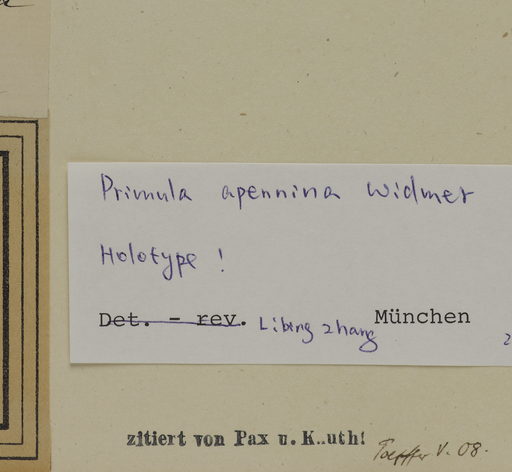 Primula apennina Widmer
Holotype !
Det. - rev. Libing Zhang München
zitiert von Pax u. K..uth!
V. 08.